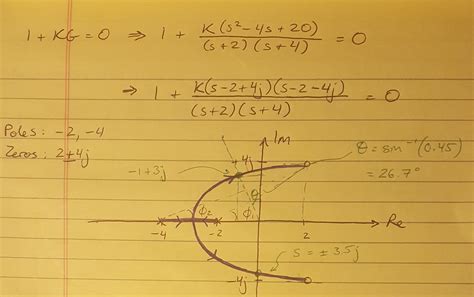 1 + KG = 0 ⇒ 1 + K(s² - 4s + 20) / (s+2)(s+4) = 0
⇒ 1 + K(s-2+4j)(s-2-4j) / (s+2)(s+4) = 0
Poles: -2, -4
Zeros: 2±4j
Im
4j
θ = sin⁻¹(0.45)
= 26.7°
-1+3j
θ
φ₂
φ₁
-4
-2
2
Re
s = ± 3.5j
-4j